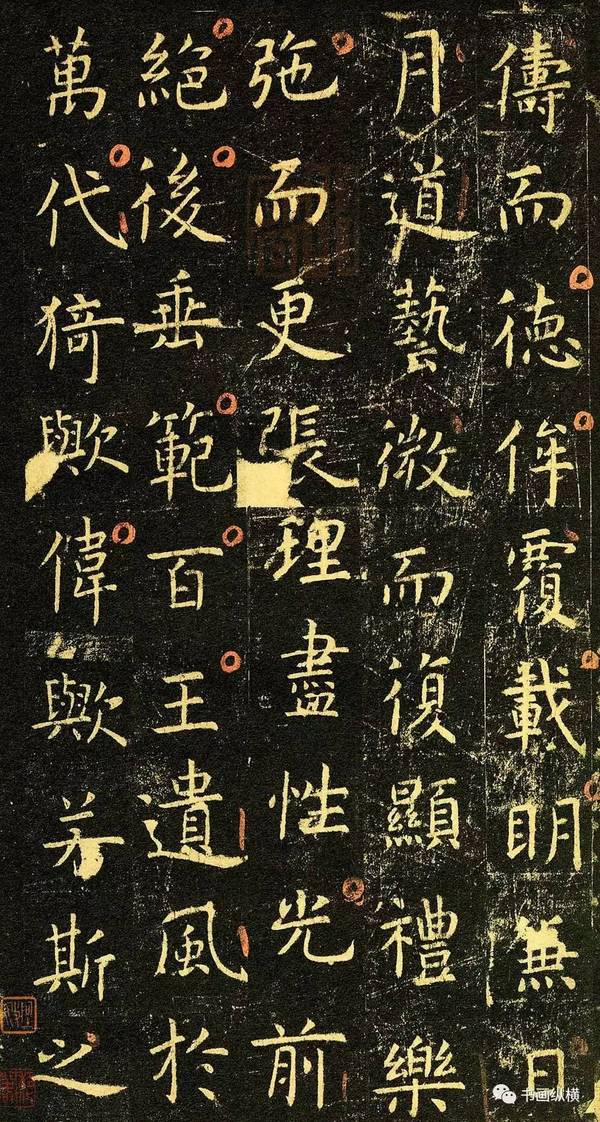 儔而德侔覆載明無日
月道藝微而復顯禮樂
弛而更張理盡性光前
絕後垂範百王遺風於
萬代猗歟偉歟若斯之
书画纵横